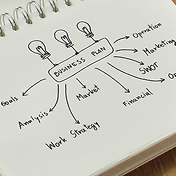 BUSINESS PLAN
Operation
Marketing
SWOT
Goals
Analysis
Market
Financial
Work Strategy